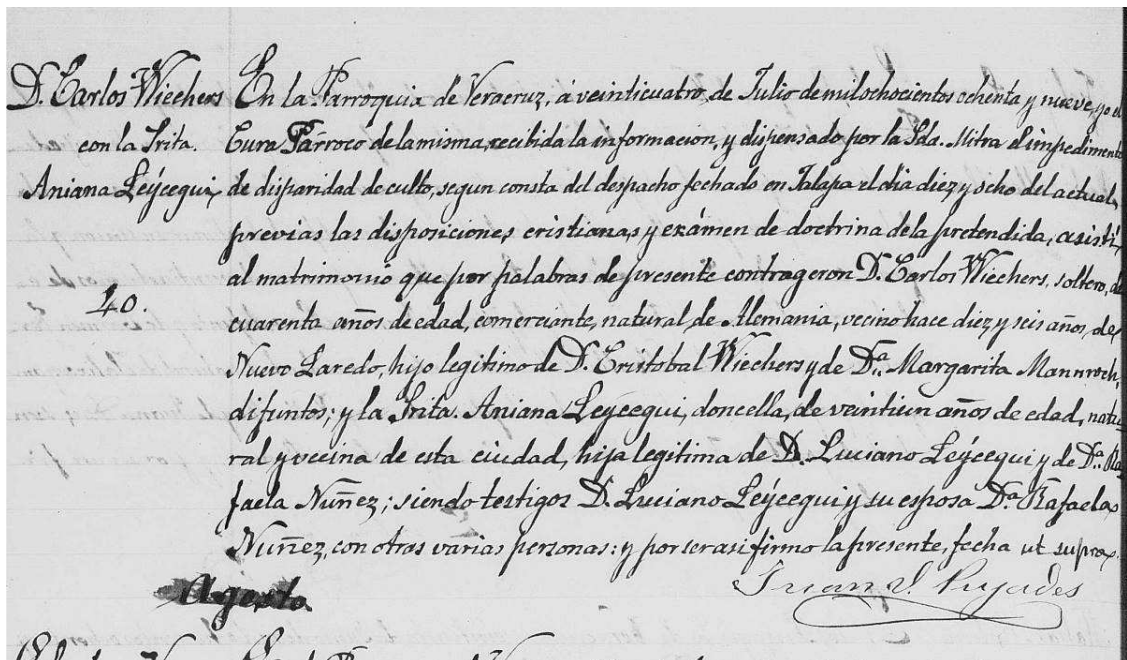 D. Carlos Wiechers
con la Srita.
Aniana Leycegui,
40.
En la Parroquia de Veracruz, á veinticuatro, de Julio de milochocientos ochenta y nueve, yo el
Cura Párroco de la misma, recibida la informacion, y dispensado por la Sda. Mitra el impedimento
de disparidad de culto, segun consta del despacho fechado en Jalapa el dia diez y ocho del actual,
previas las disposiciones cristianas, y exámen de doctrina de la pretendida, asistí
al matrimonio que por palabras de presente contrageron D. Carlos Wiechers, soltero, de
cuarenta años de edad, comerciante, natural de Alemania, vecino hace diez y seis años, de
Nuevo Laredo, hijo legitimo de D. Cristobal Wiechers y de Dª. Margarita Mannroch,
difuntos; y la Srita. Aniana Leycegui, doncella, de veintiun años de edad, natu
ral y vecina de esta ciudad, hija legitima de D. Luciano Leycegui y de Dª. Ra
faela Nuñez; siendo testigos D. Luciano Leycegui y su esposa Dª. Rafaela
Nuñez, con otras varias personas: y por ser asi firmo la presente, fecha ut supra.
Juan J. Pujades
Agosto